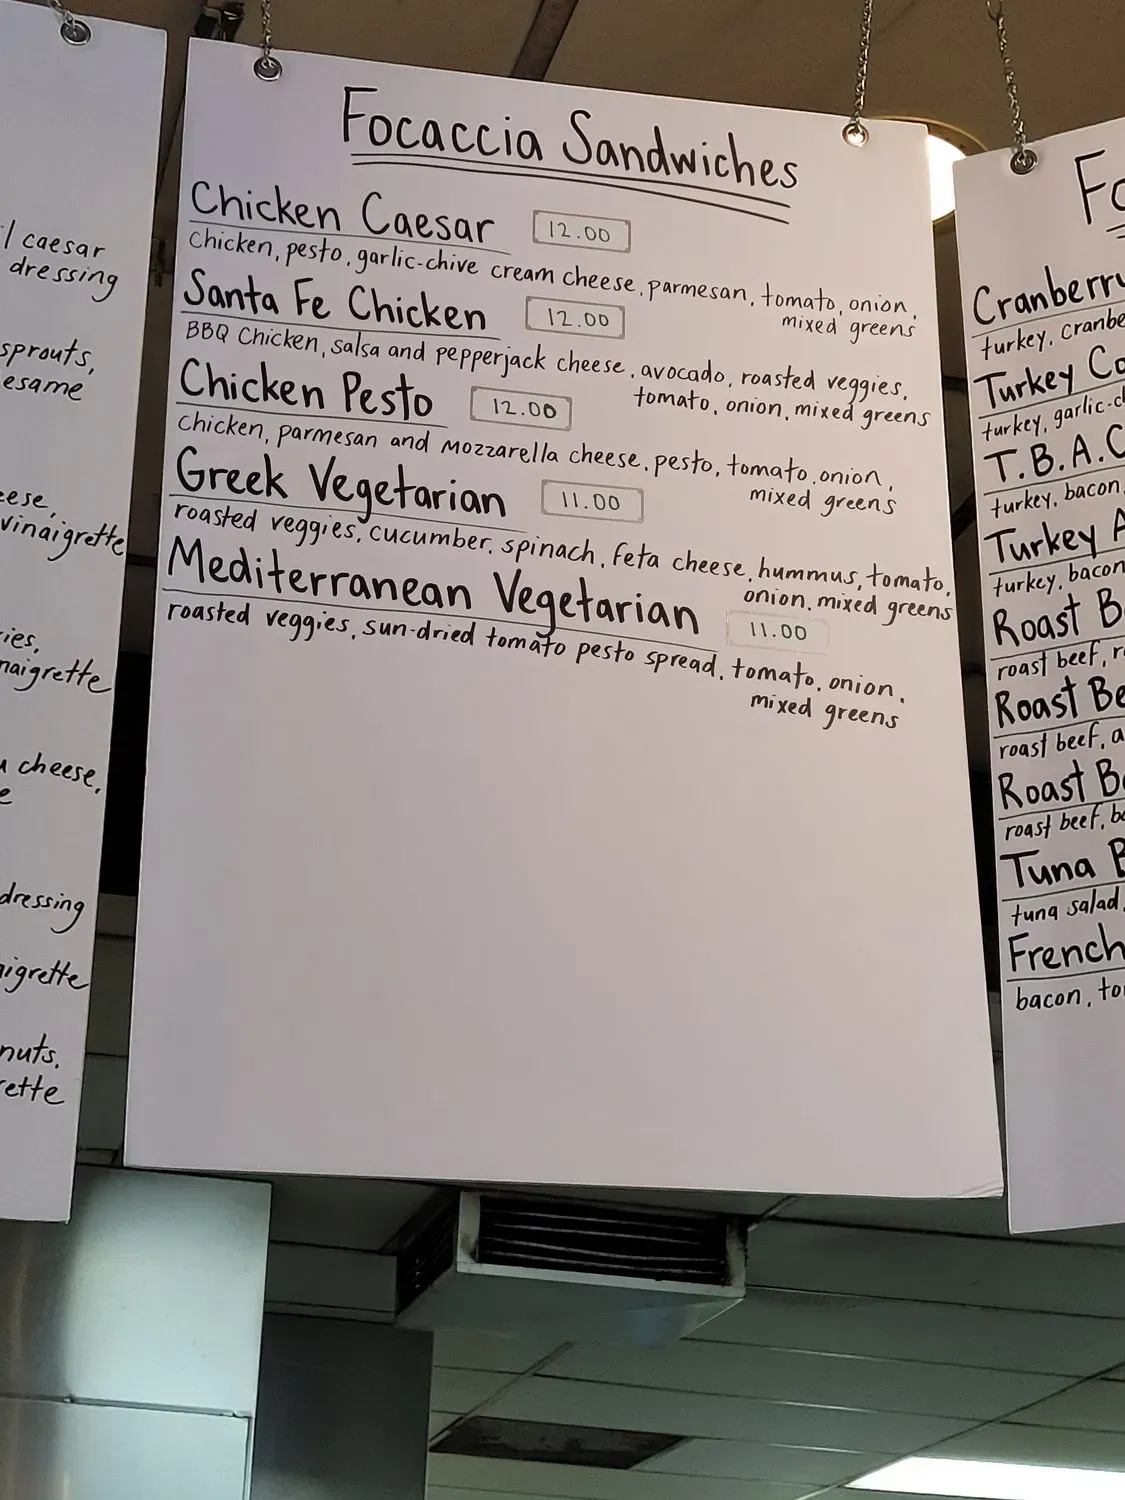 il caesar
dressing
sprouts,
esame
eese,
vinaigrette
ies,
naigrette
cheese,
e
dressing
aigrette
nuts,
rette
Focaccia Sandwiches
Chicken Caesar 12.00
Chicken, pesto, garlic-chive cream cheese, parmesan, tomato, onion,
mixed greens
Santa Fe Chicken 12.00
BBQ Chicken, salsa and pepperjack cheese, avocado, roasted veggies,
tomato, onion, mixed greens
Chicken Pesto 12.00
Chicken, parmesan and mozzarella cheese, pesto, tomato, onion,
mixed greens
Greek Vegetarian 11.00
roasted veggies, cucumber, spinach, feta cheese, hummus, tomato,
onion, mixed greens
Mediterranean Vegetarian 11.00
roasted veggies, sun-dried tomato pesto spread, tomato, onion,
mixed greens
Fo
Cranberry
turkey, cranbe
Turkey Co
turkey, garlic-c
T.B.A.C
turkey, bacon,
Turkey A
turkey, bacon
Roast B
roast beef, r
Roast Be
roast beef, a
Roast B
roast beef, b
Tuna B
tuna salad,
French
bacon, to